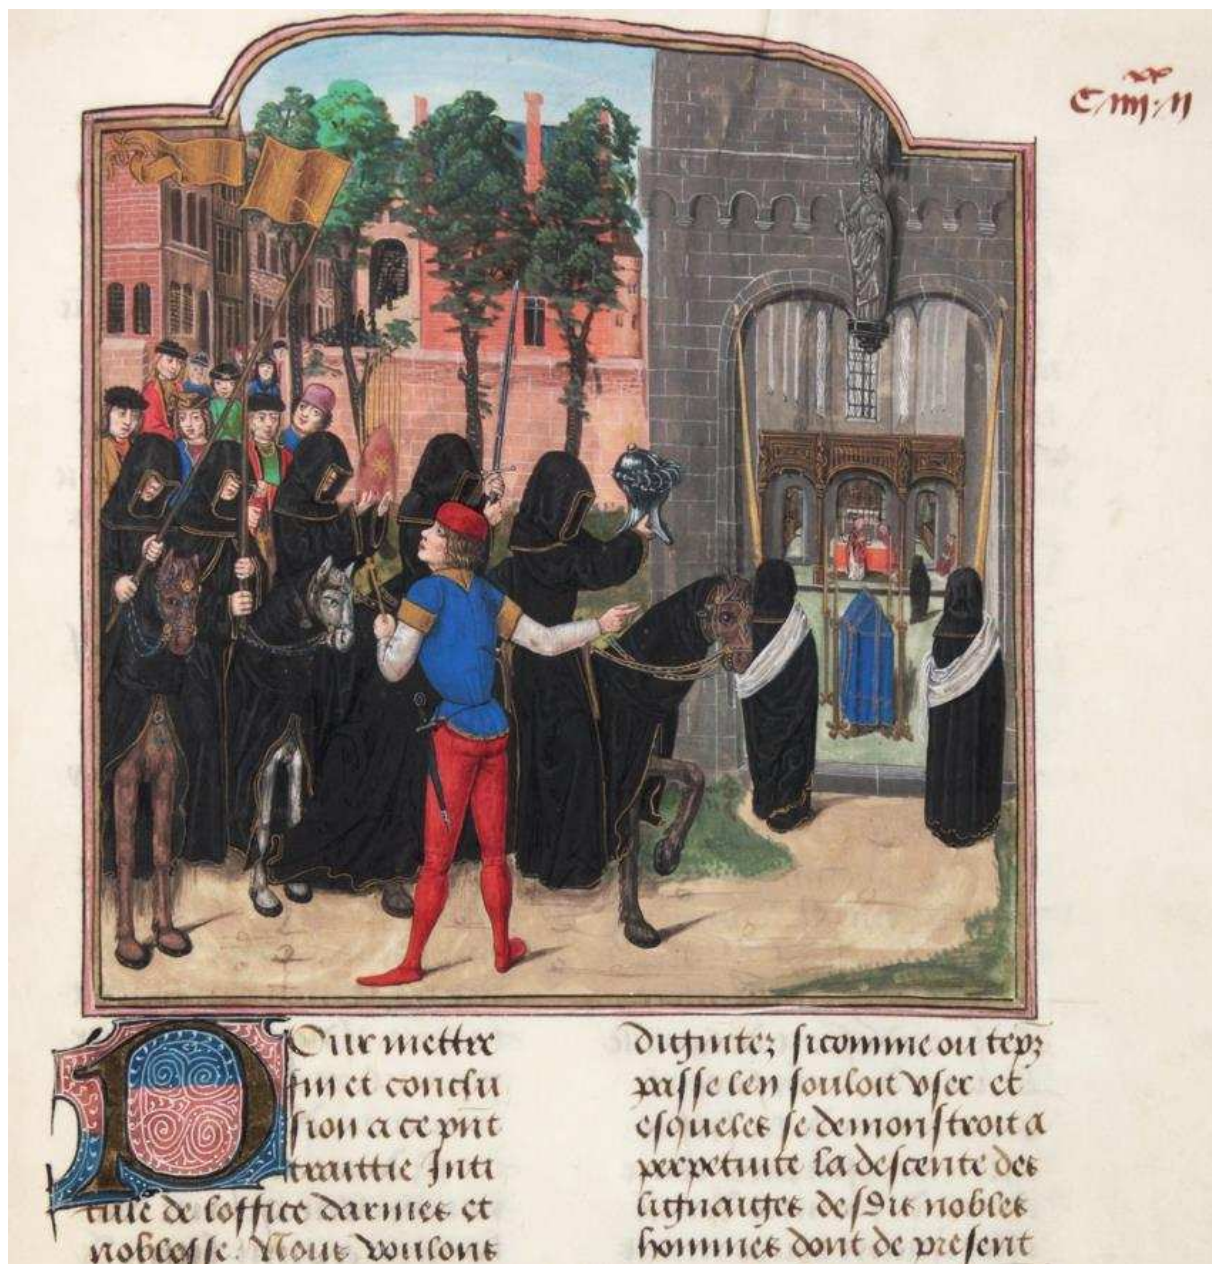 C/iiii/ii
xx
Our mettre
fin et conclu
sion a ce pnt
traittie Inti
tule de loffice darmes et
noblesse. Nous voulons
dignitez sicomme ou teps
passe len souloit vser et
esqueles se demonstroit a
perpetuite la descente des
lignaiges desdis nobles
hommes dont de present